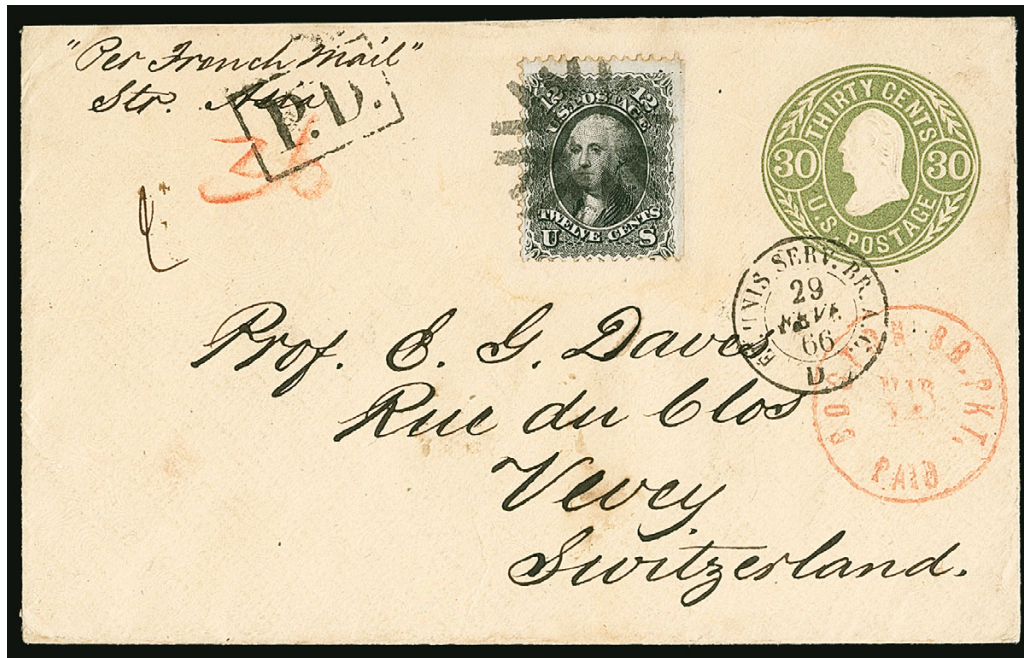 "Per French Mail"
Str.
P.D.
36
12 12
U.S. POSTAGE
TWELVE CENTS
U S
THIRTY CENTS
30 30
U.S. POSTAGE
SERV. BR. A.C.
29
66
D
BOSTON BR. PKT.
PAID
Prof. E. G. Daves
Rue du Clos
Vevey
Switzerland.